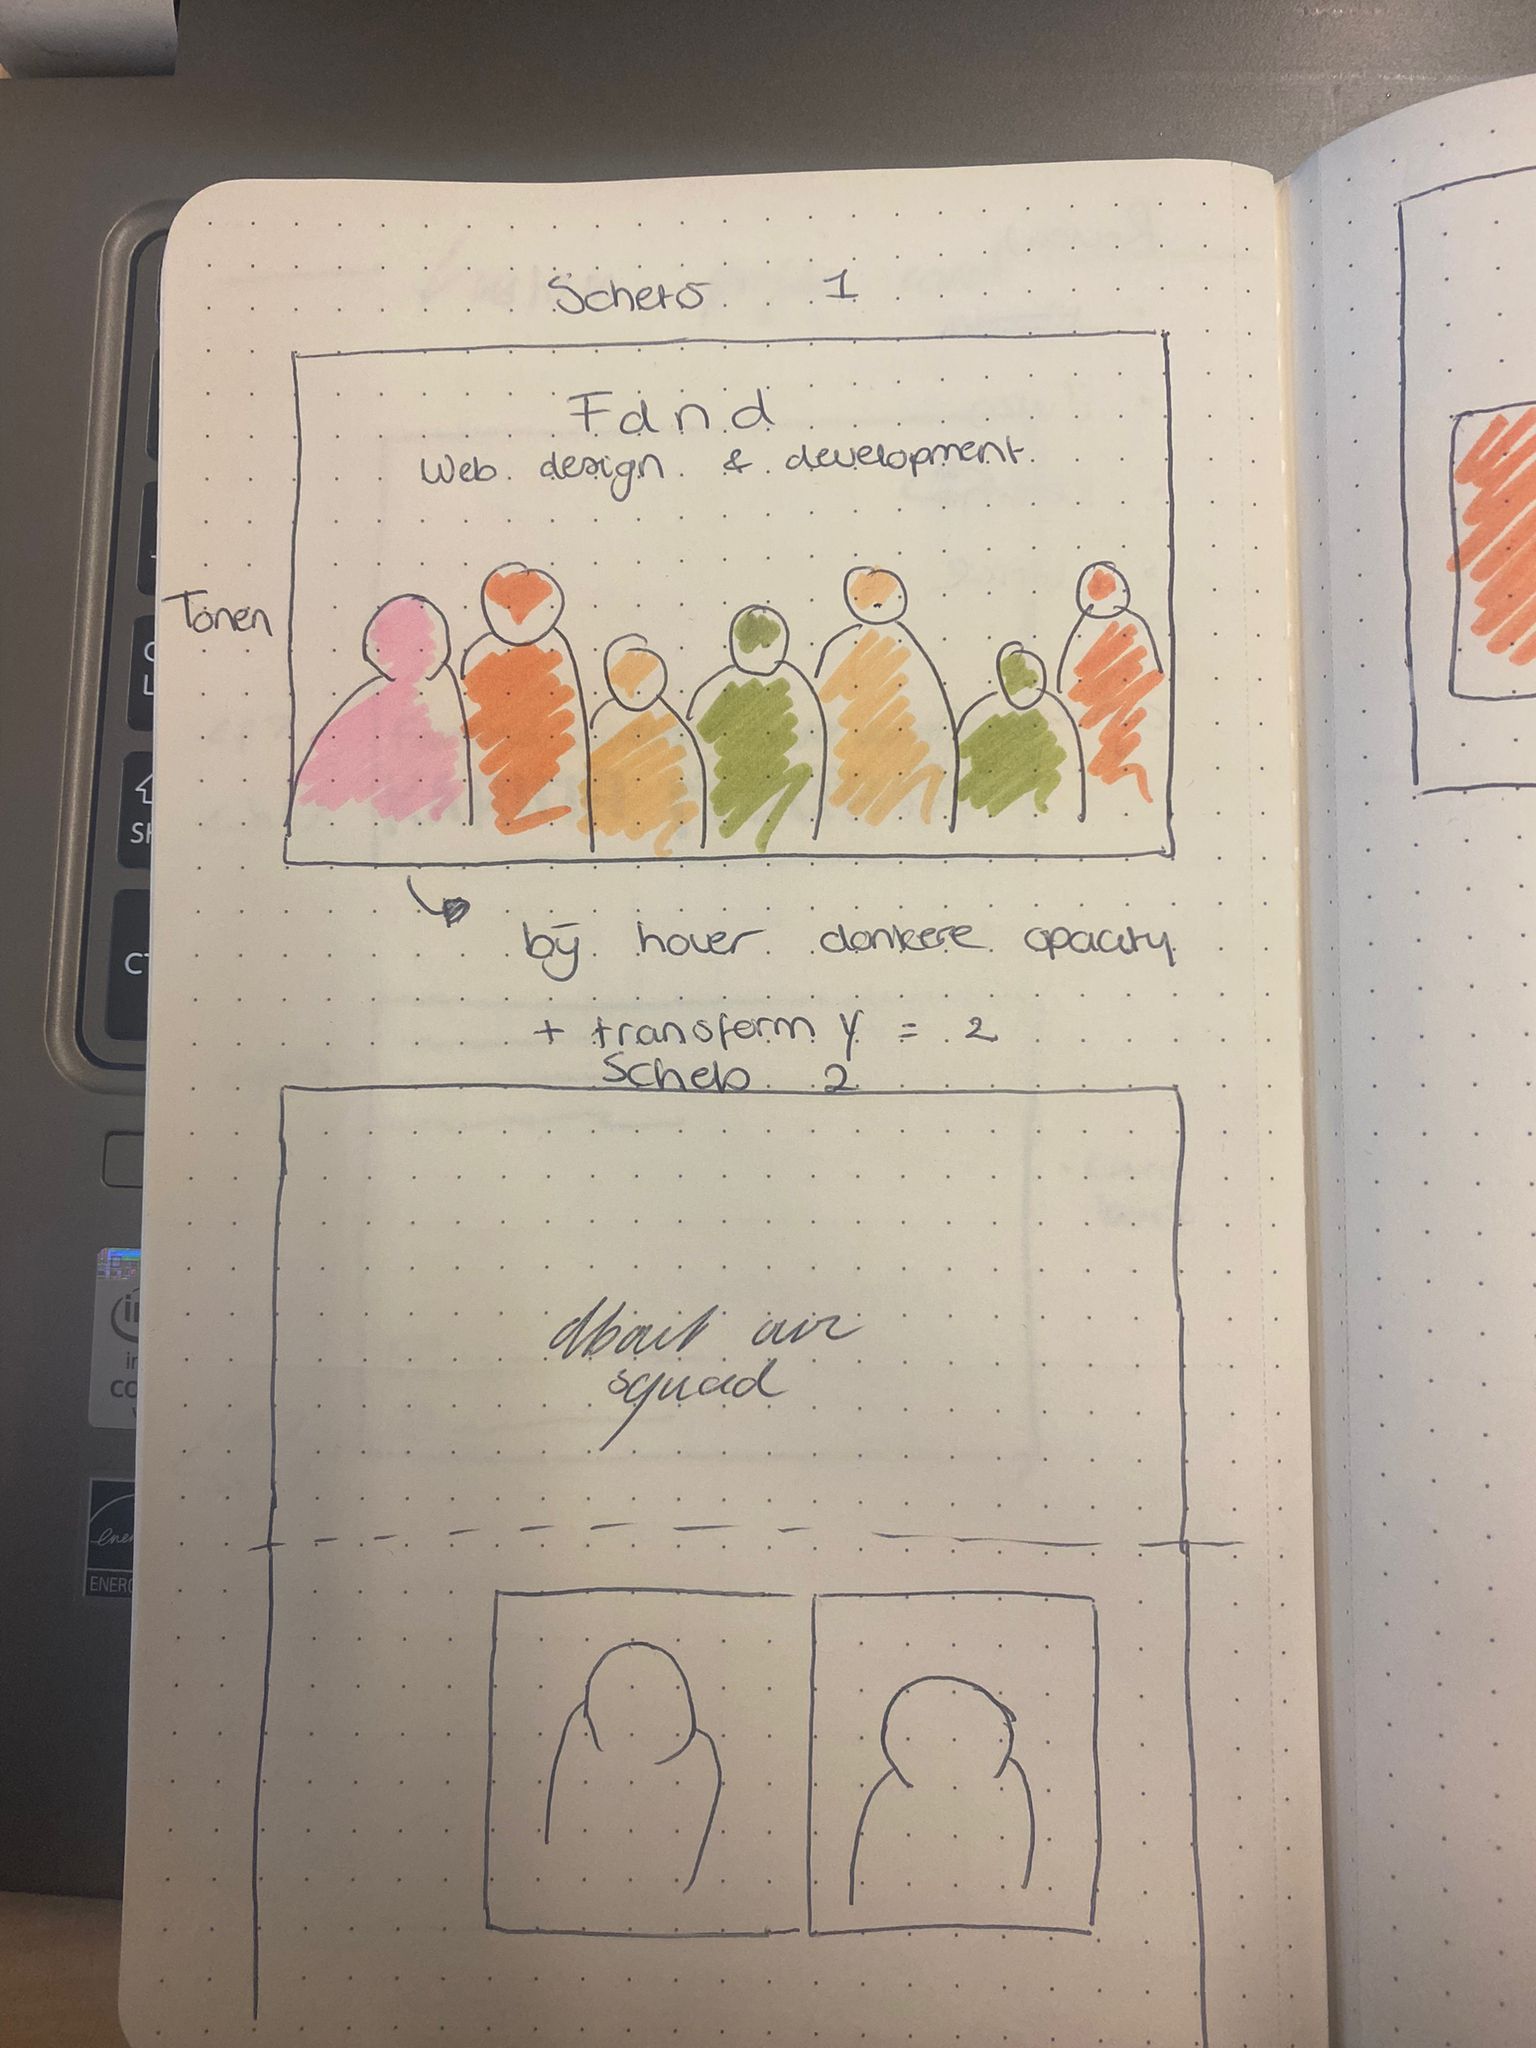 Schets 1
Fdnd
Web design & development
Tonen
bij hover donkere opacity
+ transform y = 2
Schets 2
About our
squad
ENERG